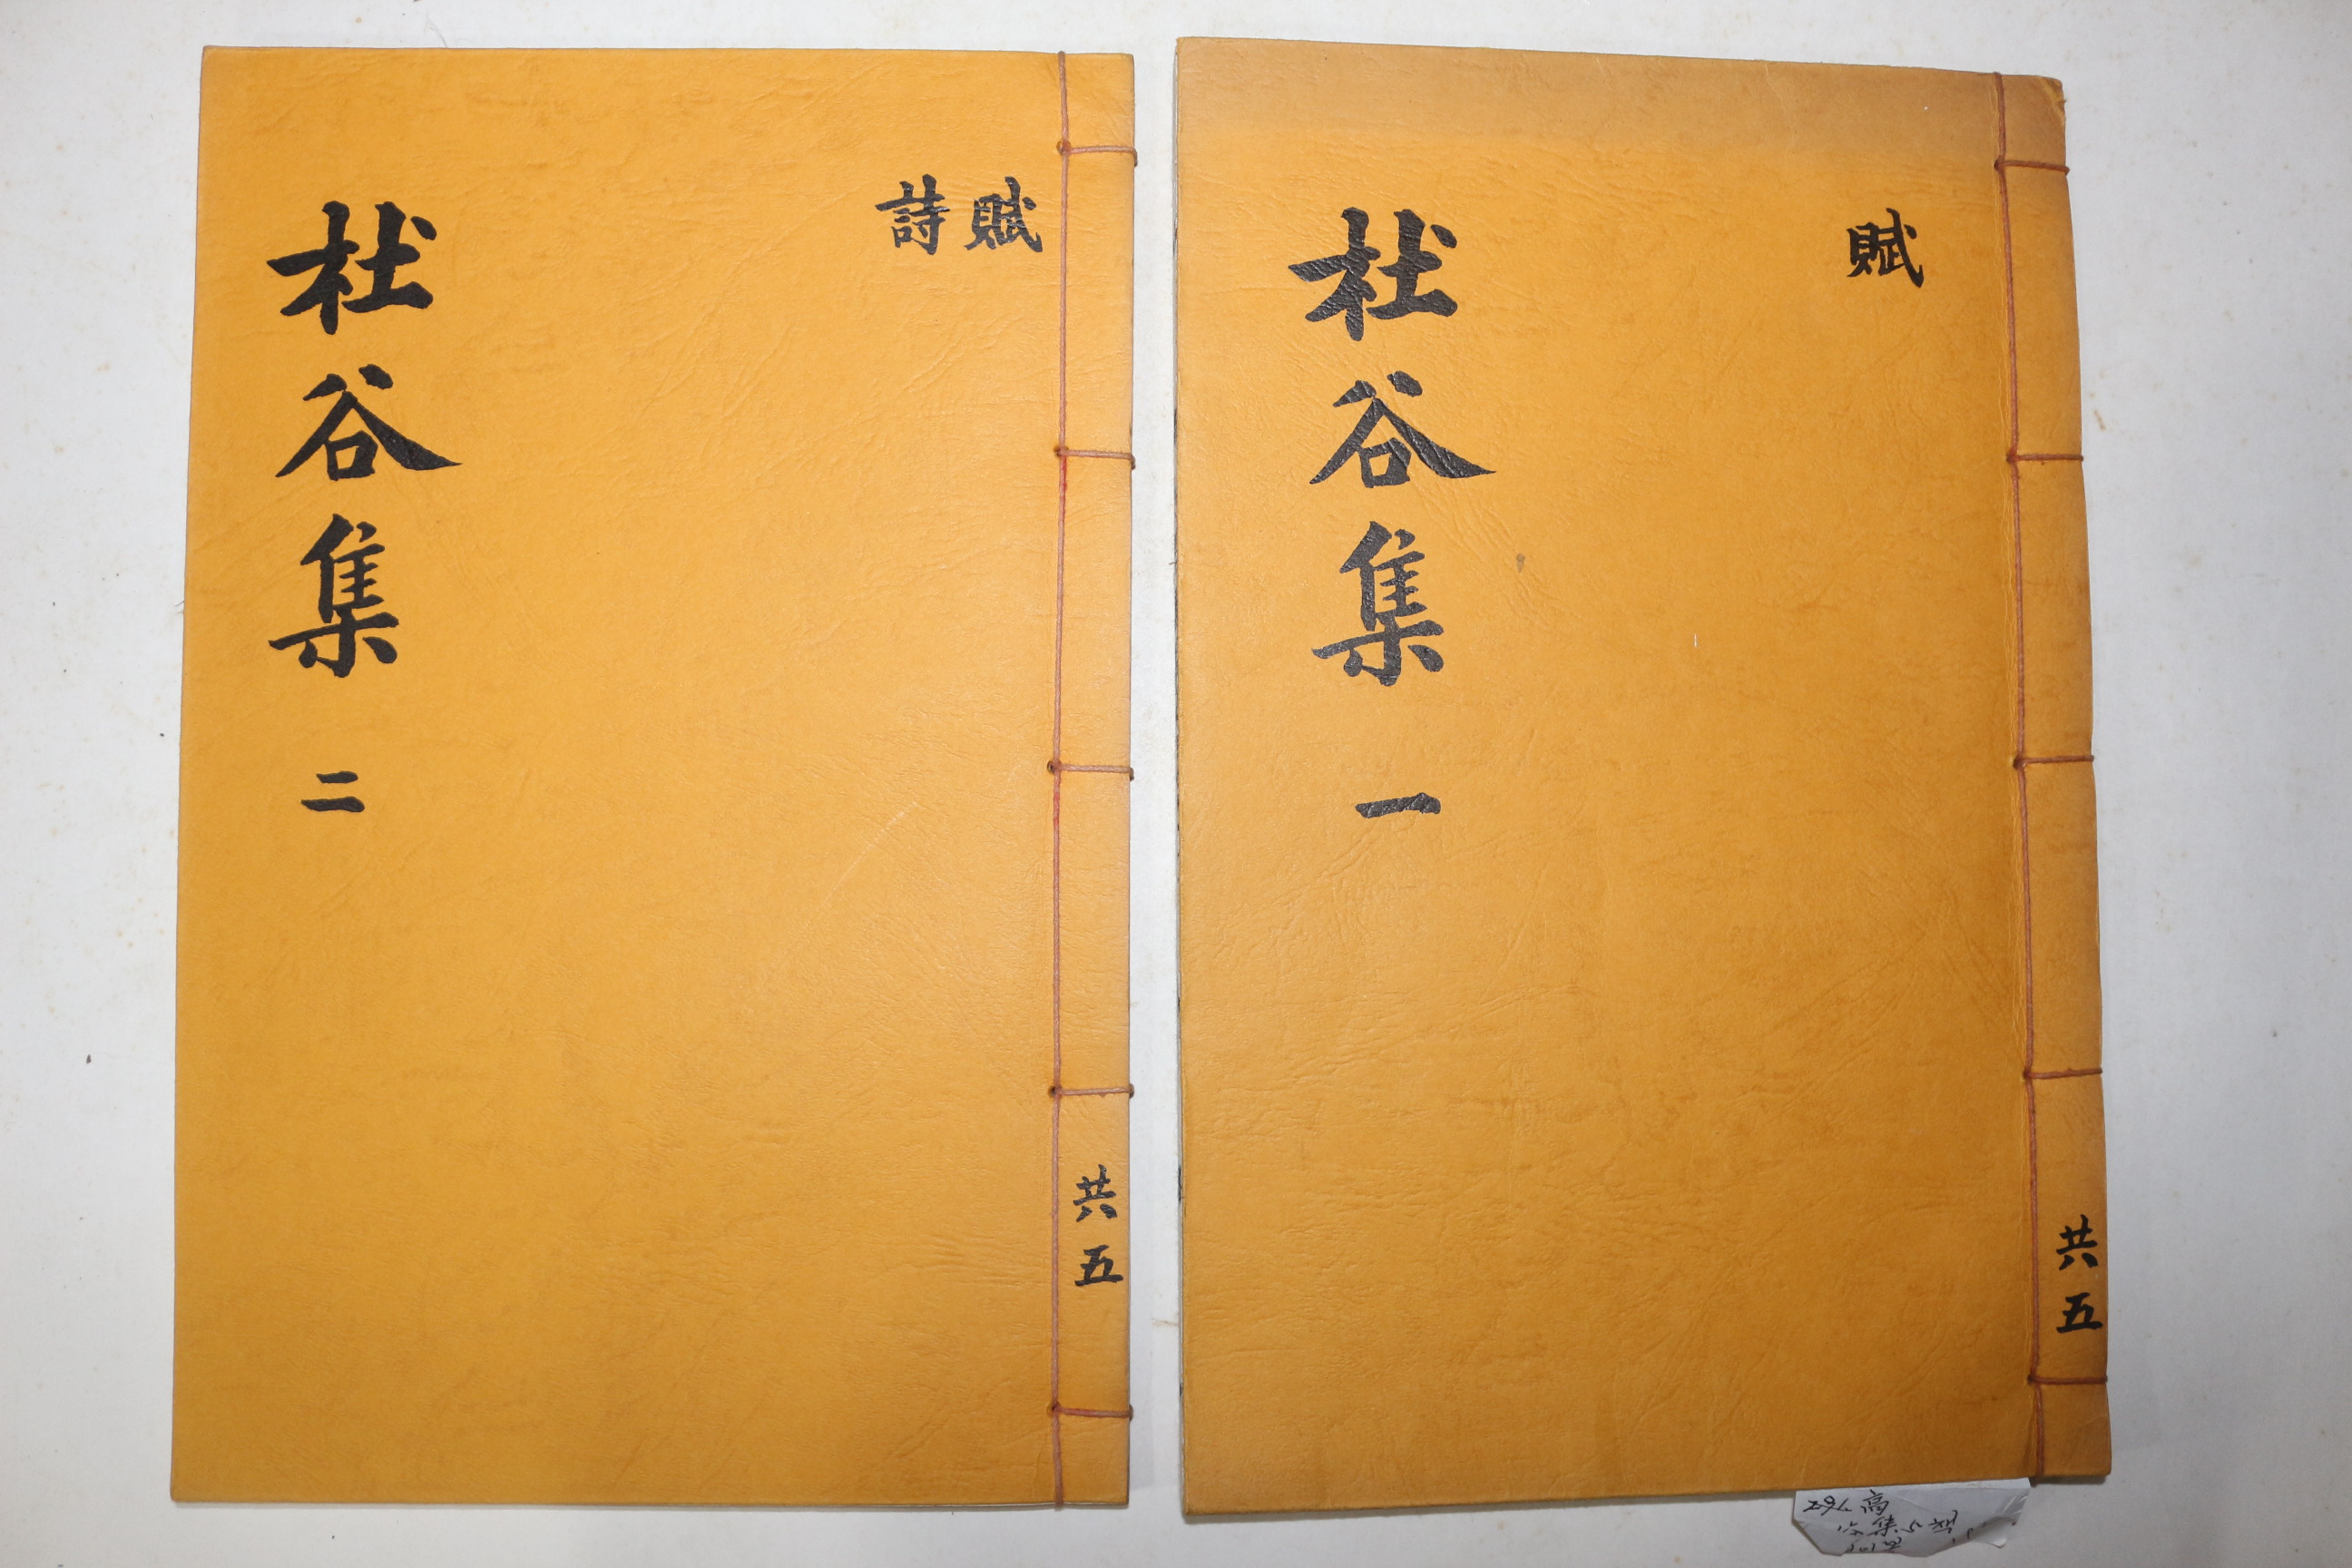 共五
賦
杜谷集 一
共五
賦
詩
杜谷集 二
高